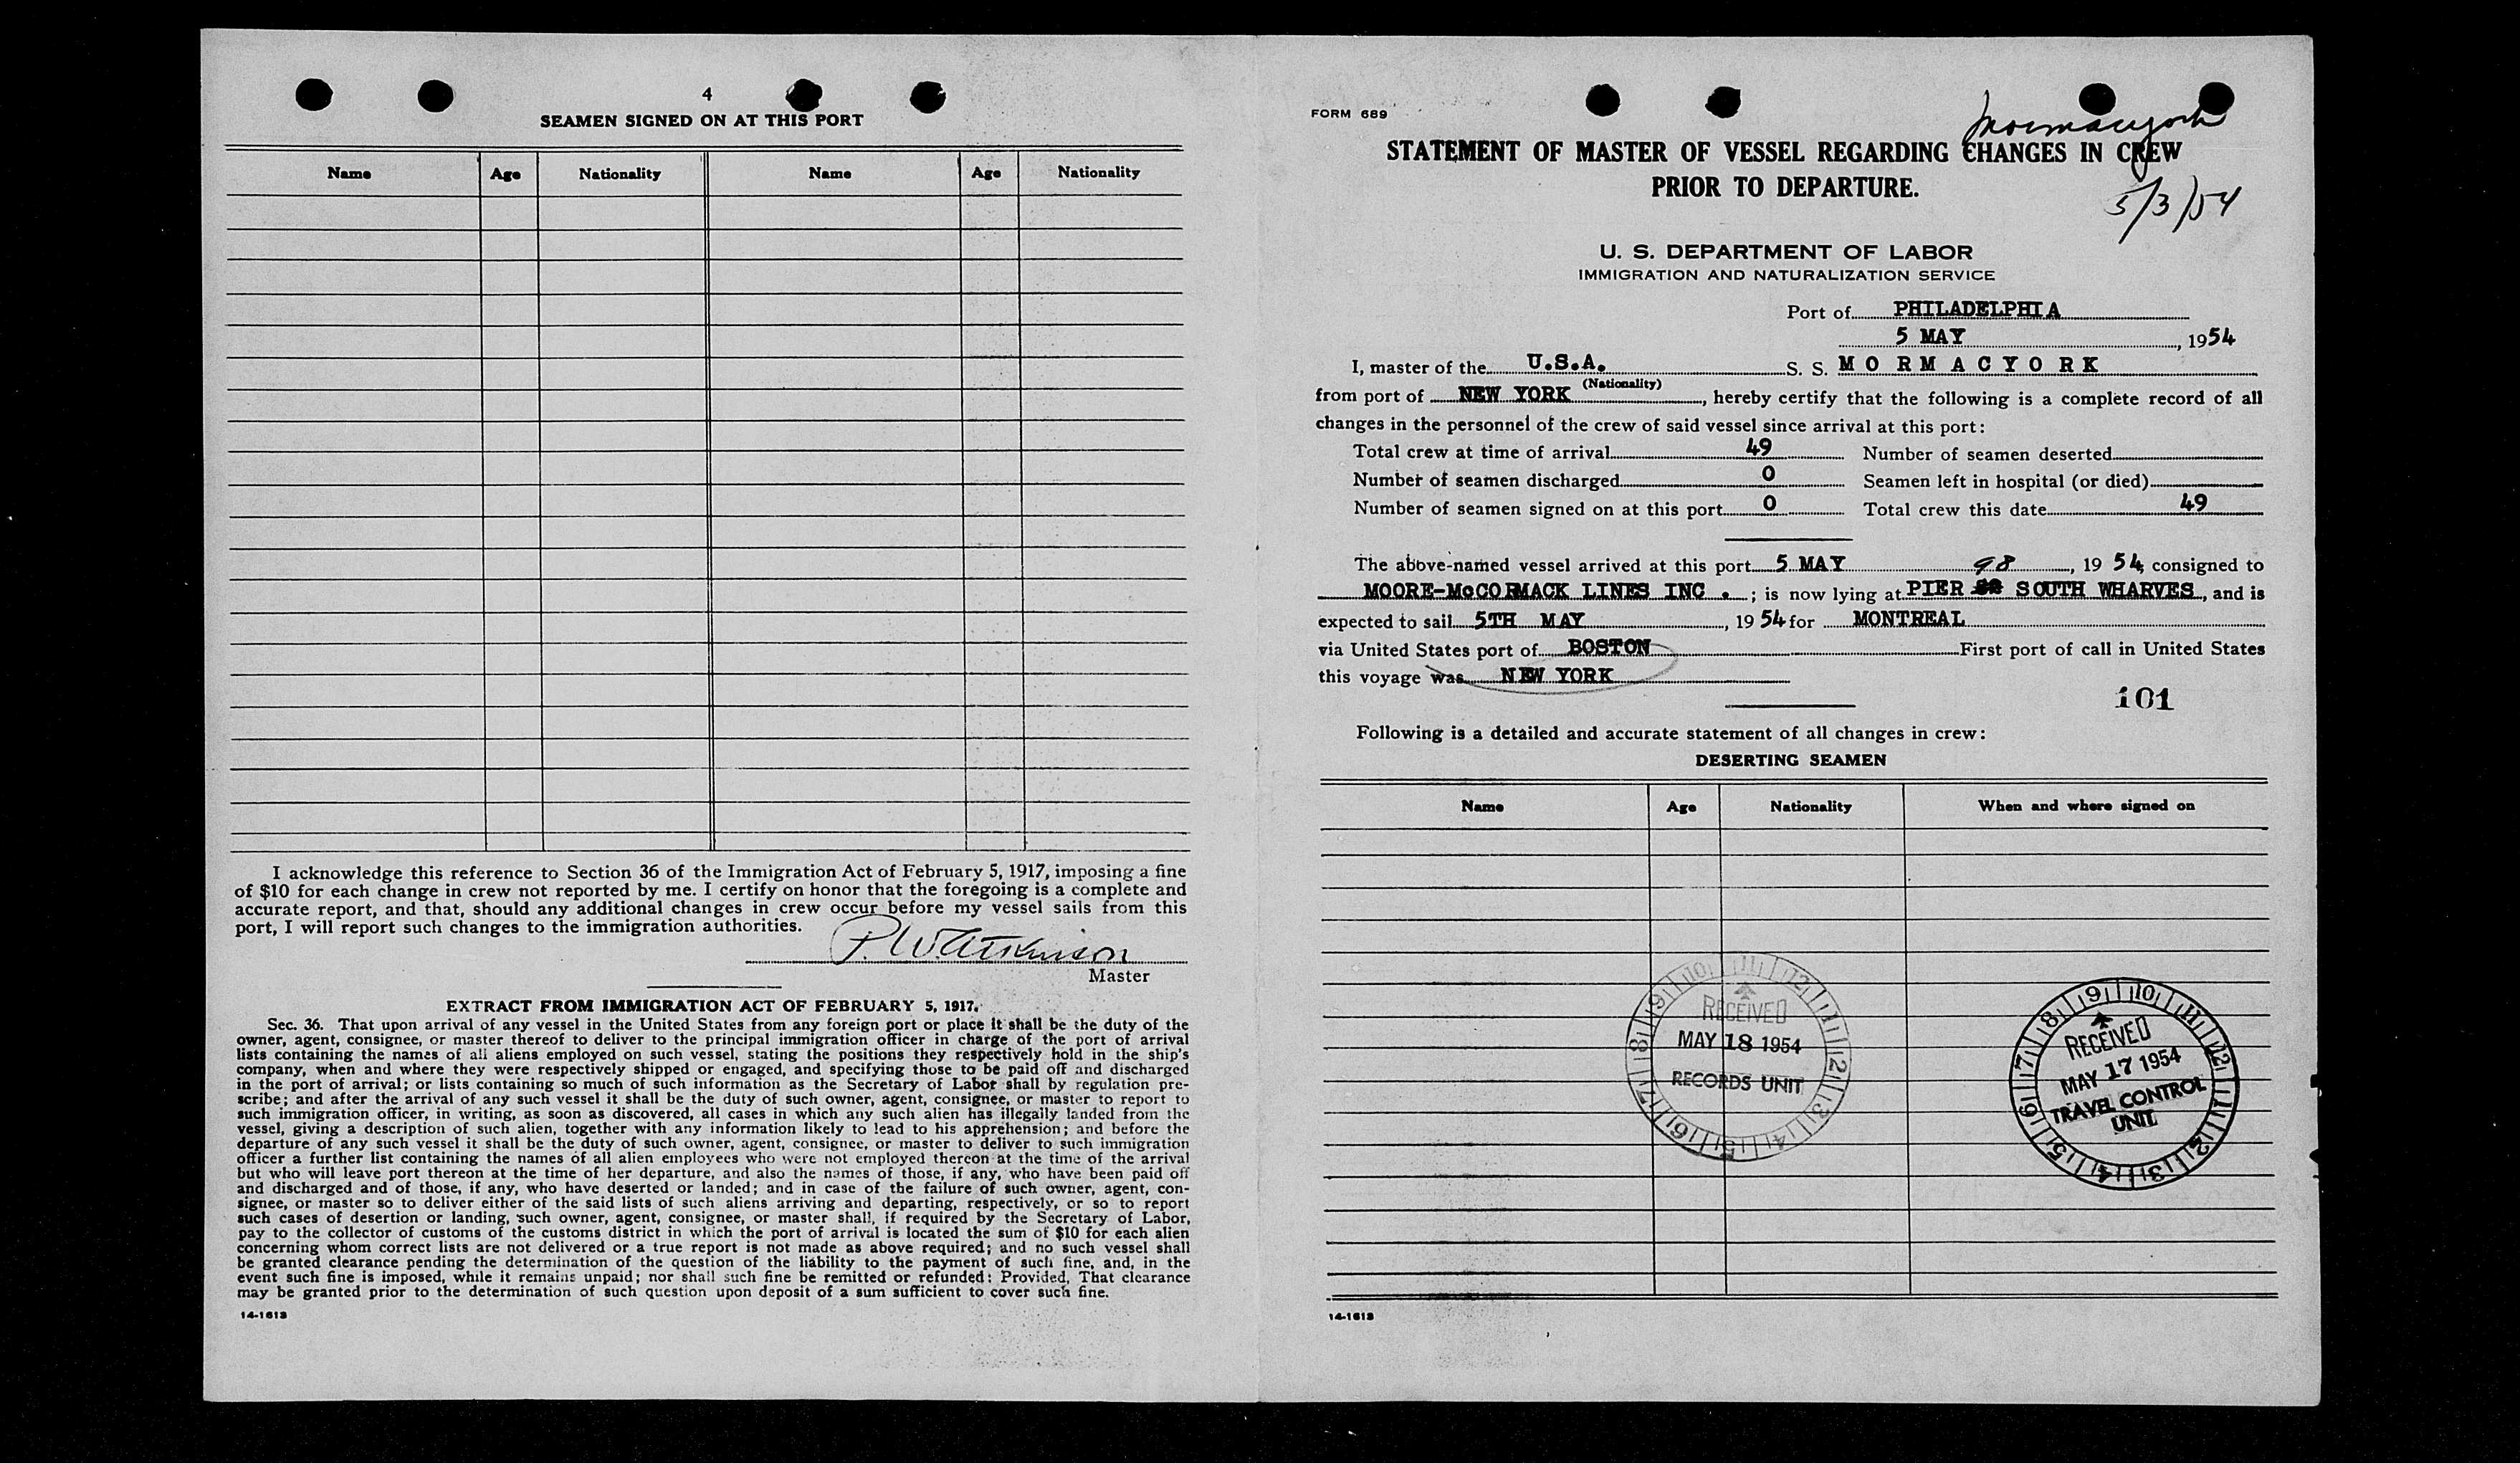 4
SEAMEN SIGNED ON AT THIS PORT
Name Age Nationality Name Age Nationality
I acknowledge this reference to Section 36 of the Immigration Act of February 5, 1917, imposing a fine
of $10 for each change in crew not reported by me. I certify on honor that the foregoing is a complete and
accurate report, and that, should any additional changes in crew occur before my vessel sails from this
port, I will report such changes to the immigration authorities.
P. W. Atkinson
Master
EXTRACT FROM IMMIGRATION ACT OF FEBRUARY 5, 1917.
Sec. 36. That upon arrival of any vessel in the United States from any foreign port or place it shall be the duty of the
owner, agent, consignee, or master thereof to deliver to the principal immigration officer in charge of the port of arrival
lists containing the names of all aliens employed on such vessel, stating the positions they respectively hold in the ship's
company, when and where they were respectively shipped or engaged, and specifying those to be paid off and discharged
in the port of arrival; or lists containing so much of such information as the Secretary of Labor shall by regulation pre-
scribe; and after the arrival of any such vessel it shall be the duty of such owner, agent, consignee, or master to report to
such immigration officer, in writing, as soon as discovered, all cases in which any such alien has illegally landed from the
vessel, giving a description of such alien, together with any information likely to lead to his apprehension; and before the
departure of any such vessel it shall be the duty of such owner, agent, consignee, or master to deliver to such immigration
officer a further list containing the names of all alien employees who were not employed thereon at the time of the arrival
but who will leave port thereon at the time of her departure, and also the names of those, if any, who have been paid off
and discharged and of those, if any, who have deserted or landed; and in case of the failure of such owner, agent, con-
signee, or master so to deliver either of the said lists of such aliens arriving and departing, respectively, or so to report
such cases of desertion or landing, such owner, agent, consignee, or master shall, if required by the Secretary of Labor,
pay to the collector of customs of the customs district in which the port of arrival is located the sum of $10 for each alien
concerning whom correct lists are not delivered or a true report is not made as above required; and no such vessel shall
be granted clearance pending the determination of the question of the liability to the payment of such fine, and, in the
event such fine is imposed, while it remains unpaid; nor shall such fine be remitted or refunded: Provided, That clearance
may be granted prior to the determination of such question upon deposit of a sum sufficient to cover such fine.
14-1613
FORM 689
Mormacyork
STATEMENT OF MASTER OF VESSEL REGARDING CHANGES IN CREW
PRIOR TO DEPARTURE.
5/3/54
U. S. DEPARTMENT OF LABOR
IMMIGRATION AND NATURALIZATION SERVICE
Port of PHILADELPHIA
5 MAY, 1954
I, master of the U.S.A. S. S. M O R M A C Y O R K
(Nationality)
from port of NEW YORK, hereby certify that the following is a complete record of all
changes in the personnel of the crew of said vessel since arrival at this port:
Total crew at time of arrival 49 Number of seamen deserted
Number of seamen discharged 0 Seamen left in hospital (or died)
Number of seamen signed on at this port 0 Total crew this date 49
The above-named vessel arrived at this port 5 MAY, 19 54, consigned to
98
MOORE-McCORMACK LINES INC .; is now lying at PIER SOUTH WHARVES, and is
expected to sail 5TH MAY, 19 54 for MONTREAL
via United States port of BOSTON First port of call in United States
this voyage was NEW YORK
101
Following is a detailed and accurate statement of all changes in crew:
DESERTING SEAMEN
Name Age Nationality When and where signed on
9 10 11 12 1 2 3 4 5 6 7 8
RECEIVED
MAY 18 1954
RECORDS UNIT
9 10 11 12 1 2 3 4 5 6 7 8
RECEIVED
MAY 17 1954
TRAVEL CONTROL
UNIT
14-1613